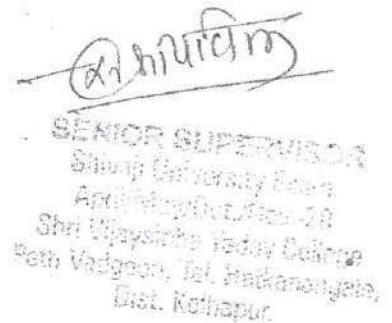 SENIOR SUPERVISOR
Shivaji University Exam
April/May/Oct./Nov.-20
Shri Vijaysinha Yadav College
Peth Vadgaon, Tal. Hatkanangale,
Dist. Kolhapur.